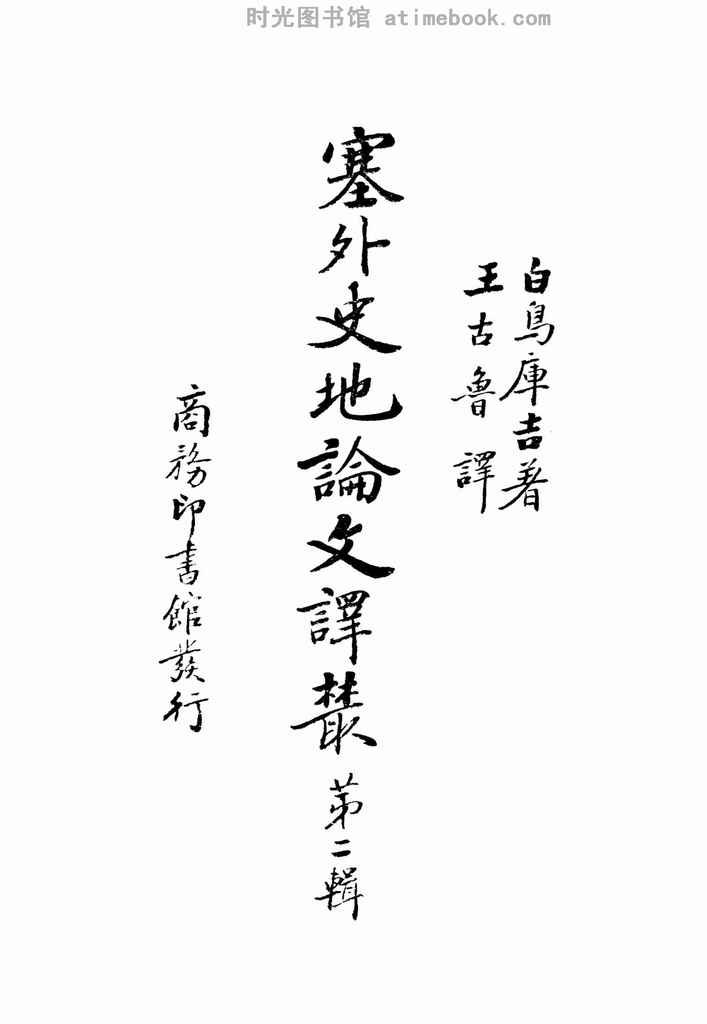 时光图书馆 atimebook.com
白鳥庫吉著
王古魯譯
塞外史地論文譯叢 第二輯
商務印書館發行